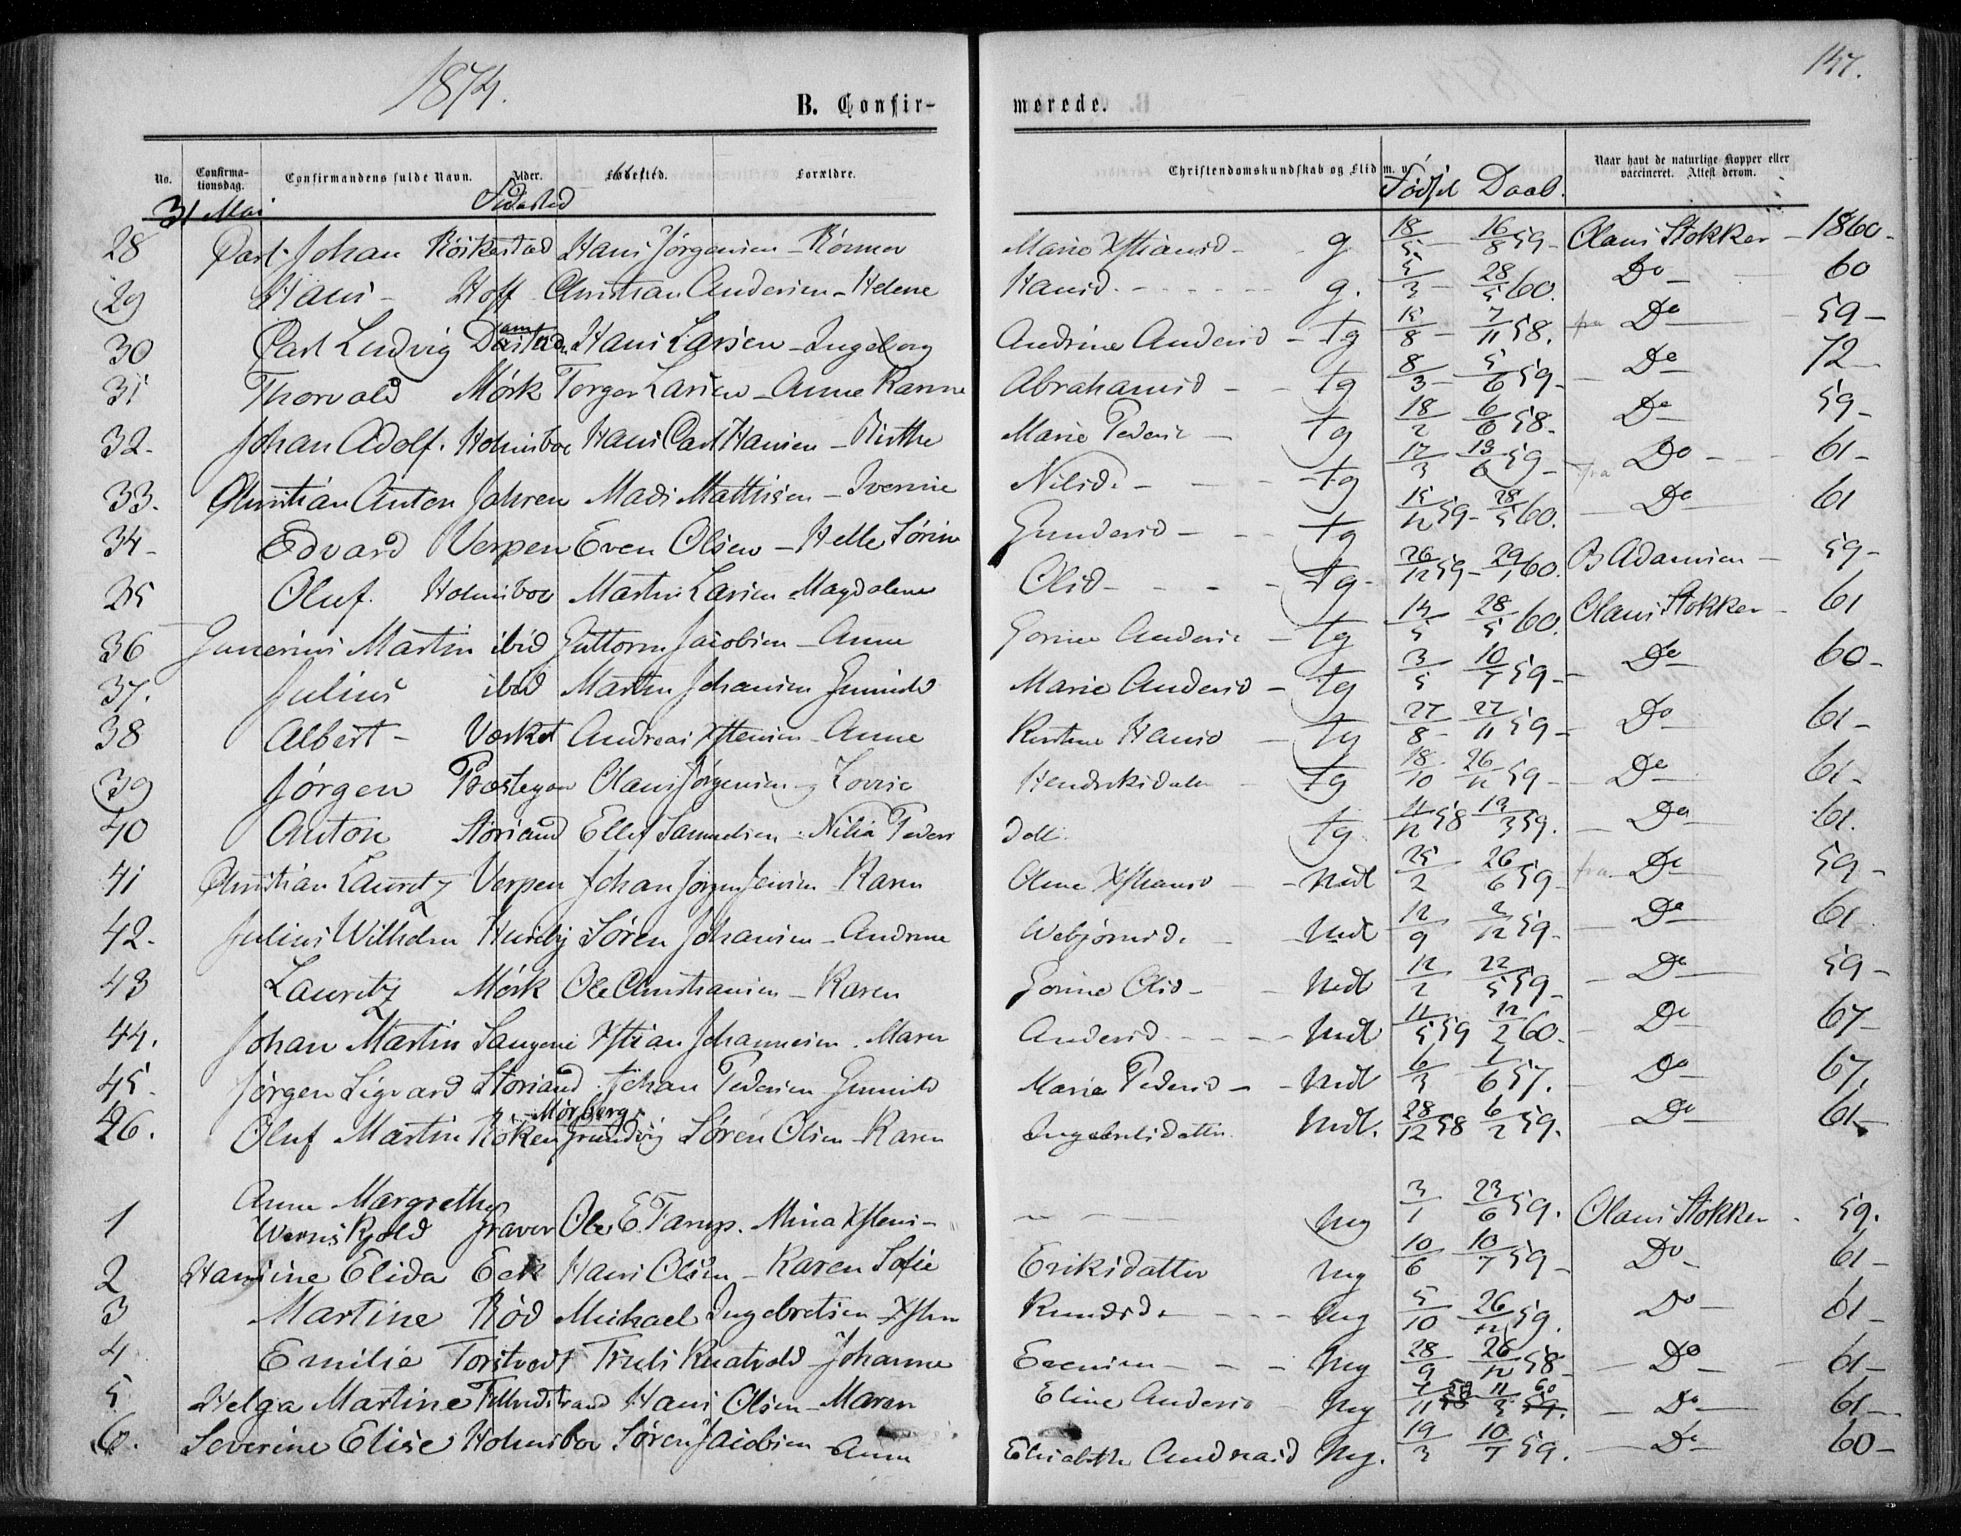 1874.
147.
B. Confirmerede.
No. Confirmationsdag. Confirmandens fulde Navn. Alder. Fødested. Forældre. Christendomskundskab og Flid m. v. Fødsel Daab. Naar havt de naturlige Kopper eller vaccineret. Attest derom.
31 Mai
28 Carl Johan Röikestad Hans Jörgensen - Marie g. 18/5 - 16/8 59 - Olaus Stokker - 1860 -
29 Hans - Hoff Christian Andersen - Helene Hansd. g. 5/3 - 28/5 60. Do - 60
30 Carl Ludvig Hans Larsen - Ingeborg Andrine Andersd - tg 15/8 - 7/11 58. fra Do - 59 -
31 Thorvald Mörk Torger Larsen - Anne Karine Abrahamsd - tg 8/3 - 5/6 59 - Do 72
32. Johan Adolf. Holmsboe Hans Carl Hansen - Birthe Marie Peders - tg 18/2 6/6 58. Do 59 -
33. Christian Anton Jahren Mads Mathisen - Iverine Nilsd. - tg 17/3 13/6 59 - fra Do - 61 -
34 - Edvard Verpen Even Olsen - Helle Sörine Gundersd - tg 15/12 59 - 28/5 60. Do 61
35 Oluf. Holmsboe Martin Larsen - Magdalene Olsd - tg - 26/12 59 - 29/1 60. B Adamsen - 59 -
36 Gunerius Martin ibid Guttorm Jacobsen - Anne Gorine Anders - tg 14/5 28/5 60. Olaus Stokker - 61
37. Julius ibid Martin Johansen Gunild Marie Andersd - tg 3/5 10/7 59 - Do 60 -
38 Albert - Værket Andreas Xstensen - Anne Kirstine Hansd - tg 27/8 - 27/11 59 - Do 61 -
39 Jörgen Præstegaar Olaus Jörgensen og Lovise Hendriksdatter tg 18/10 26/12 59 - Do 61 -
40 Anton Störsand Ellef Samuelsen - Nilia Peders datt. tg 11/12 58 19/3 59. Do 61.
41 Christian Lauritz Verpen Johan Jörgen Jensen - Karen Oline Xstiansd - Mdt 25/2 26/6 59 - fra Do 59 -
42. Julius Wilhelm Huseby Sören Johansen - Andrine Webjörnsd. Mdt 12/9 2/12 59 - Do 61
43 Lauritz Mörk Ole Christiansen - Karen Gorine Olsd - Mdt 12/2 22/5 59 - Do 59 -
44. Johan Martin Xstian Johannesen. Maren Andersd. - Mdt 11/5 59 12/2 60. Do 67 -
45. Jörgen Sigvard Störsand Johan Pedersen Gunild Marie Pedersd - Mdt 6/3 1/6 57. Do 67,
46. Oluf Martin Röken Mörberg Grundvig Sören Olsen - Karen Ingebretsdatter. Mdt. 28/12 58 6/2 59. Do 61 -
1 Anne Margrethe Wernskjold Graver Ole E. Mina Xstens - Mg 3/1 23/6 59. Olaus Stokker. 59.
2 Hansine Elida Eek Hans Olsen - Karen Sofie Eriksdatter Mg 10/6 10/7 59 - Do 61 -
3 Martine Röd Michael Ingebretsen - Xstin Knudsd. - Mg 5/10 26/12 59. Do - 61 -
4 Emilie Torstvedt Truls Knatvold - Johanne Evensen - Mg 28/9 26/12 58 - Do 61 -
5 Helga Martine Hans Olsen - Maren Eline Andersd Mg 11/5 60 Do 61 -
6. Severine Elise Holmsboe Sören Jacobsen - Anne Elisabeth Andreasd Mg. 19/3 10/7 59. Do 60 -